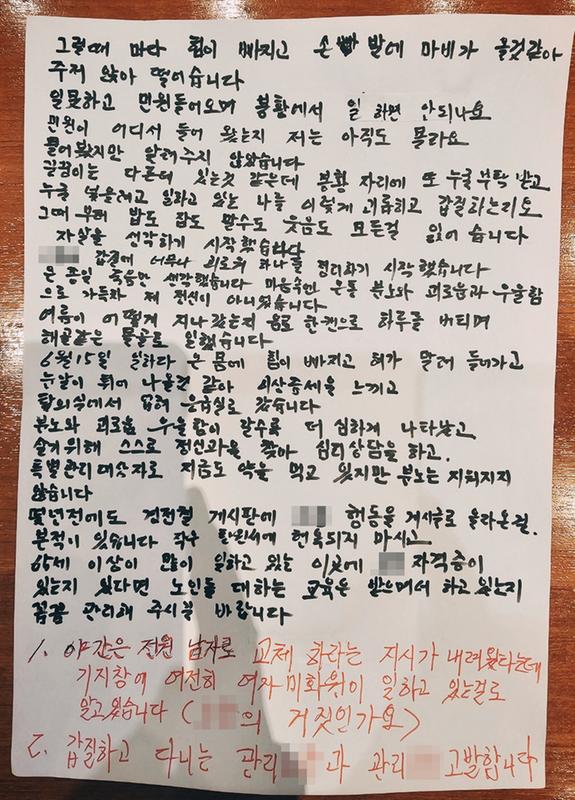 그럴때 마다 힘이 빠지고 손 발에 마비가 올것같아
주저 앉아 떨어습니다
일못하고 민원들어오며 봉황에서 일 하면 안되나요
민원이 어디서 들어 왔는지 저는 아직도 몰라요
물어봤지만 알려주지 않았습니다
결꿈이는 다른데 있는것 같은데 봉황 자리에 또 누굴 부탁 받고
누굴 넣을려고 일하고 있는 나를 이렇게 괴롭히고 갑질하는리도
그때 부터 밥도 잠도 말수도 웃음도 모든걸 잃어 습니다
자살을 생각하기 시작했습니다
갑질에 너무나 괴로워 하나를 정리하기 시작했습니다
온 종일 죽음만 생각했습니다 마음속에는 온통 분노와 괴로움과 우울함
으로 가득차 제 정신이 아니었습니다
여름이 어떻게 지나 갔는지 음료 한캔으로 하루를 버티며
해골같은 몰골로 일했습니다
6월 15일 일하다 온 몸에 힘이 빠지고 혀가 말려 들어가고
눈알이 튀어 나올것 같아 이상증세을 느끼고
탈의실에서 응급실로 갔습니다
분노와 괴로움 우울함이 갈수록 더 심하게 나타났고
살기 위해 스스로 정신과을 찾아 심리상담을 하고.
특별관리 대상자로 지금도 약을 먹고 있지만 분노는 지워지지
않습니다
몇년전에도 경전철 게시판에 행동을 게시글로 올라온걸.
본적이 있습니다 직원에 현혹되지 마시고
65세 이상이 많이 일하고 있는 이곳에 자격증이
있는지 있다면 노인들 대하는 교육은 받으면서 하고 있는지
꼼꼼 관리해 주시길 바랍니다
1. 야간은 전원 남자로 교체 하라는 지시가 내려왔다는데
기지창에 여전히 여자 미화원이 일하고 있는걸로
알고있습니다 ( 의 거짓인가요)
2. 갑질하고 다니는 관리 과 관리 고발합니다